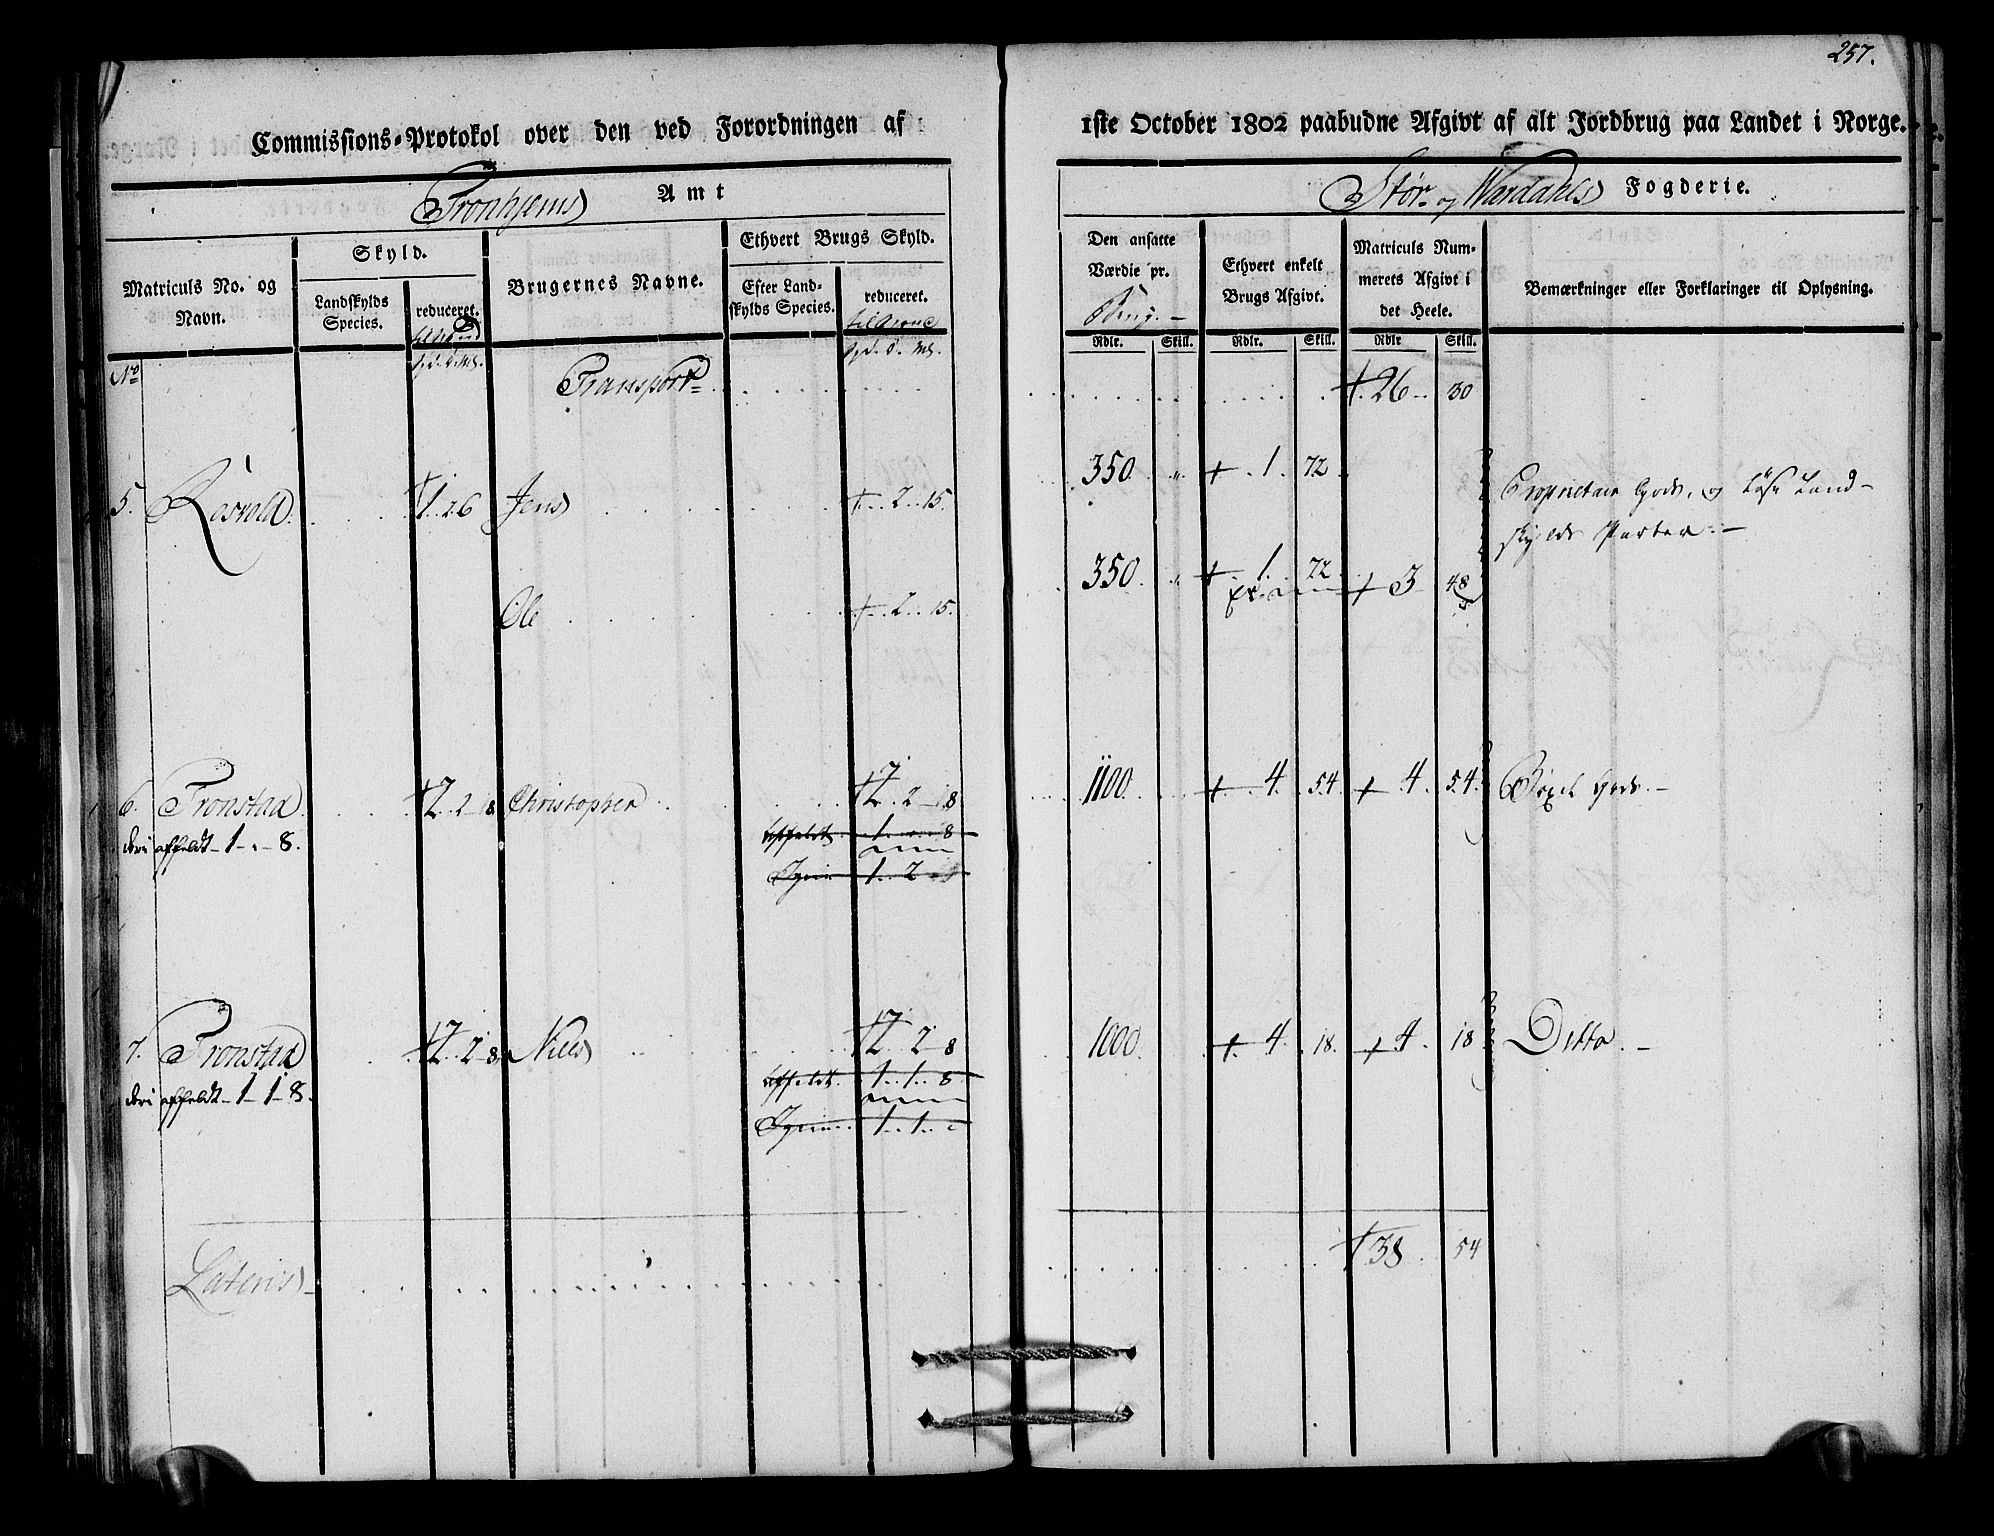 257.
Commissions-Protokol over den ved Forordningen af 1ste October 1802 paabudne Afgivt af alt Jordbrug paa Landet i Norge.
Tronhjems Amt
Stør- og Wærdahls Fogderie.
Matriculs No. og Navn.
Skyld.
Landskylds Species.
reduceret.
Brugernes Navne.
Ethvert Brugs Skyld.
Efter Landskylds Species.
reduceret.
Den ansatte Værdie pr.
Ethvert enkelt Brugs Afgivt.
Matriculs Nummerets Afgivt i det Heele.
Bemærkninger eller Forklaringer til Oplysning.
Rdlr. Skill. Rdlr. Skill. Rdlr Skill.
No
Transport 26 30
5. Rosvold 1 2 6 Jens 2 15. 350 1. 72 Proprietair Gods, og Løse Land-
skylds Parter.
Ole 2 15. 350. 1 72 3 48
6. Tronstad 2 2 8 Christopher 2 2 8 1100. 4. 54 4. 54. Bøxel Gods.
deri affeldt 1 - 8. affeldt 1 8
Igien 1 2
7. Tronstad 2 2 8 Niels 2 2 8 1000. 4. 18. 4. 18 Ditto.
deri affeldt 1 1 8. affeldt 1 1 8
Igien 1 1
Lateris 38 54